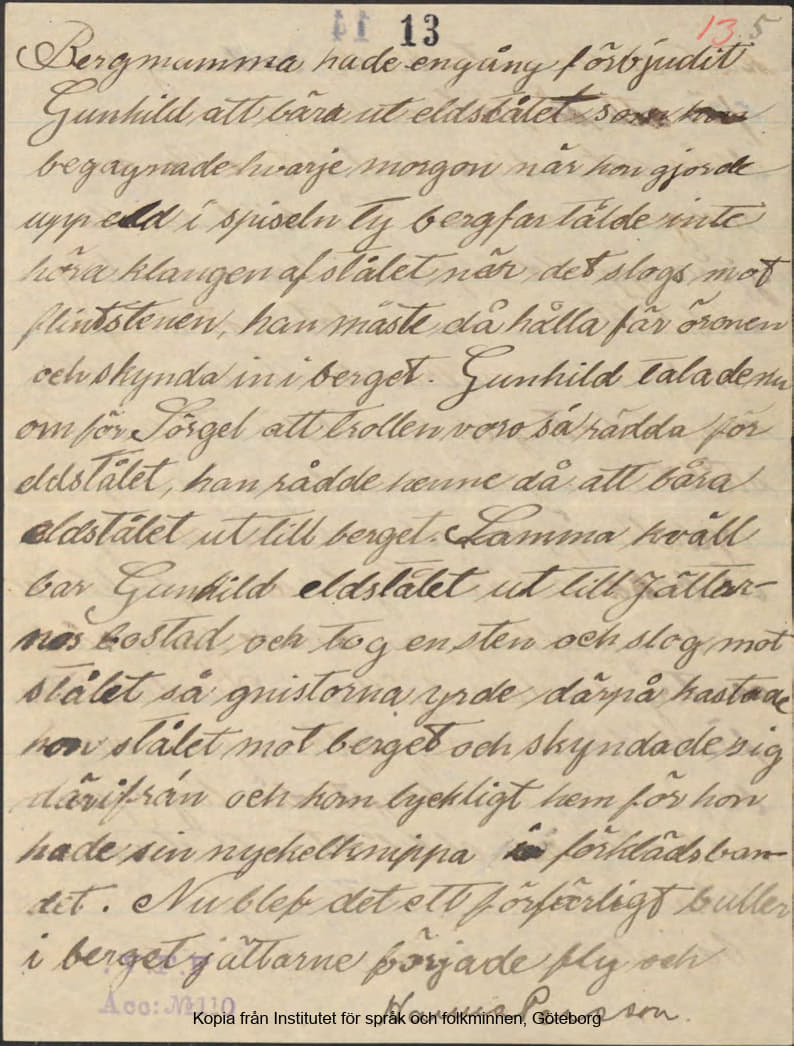 13
13. 5
Bergmumma hade engång förbjudit
Gunhild att bära ut eldstålet som
begagnade hvarje morgon när hon gjorde
upp eld i spiseln ty bergfar tålde inte
höra klangen af stålet när det slogs mot
flintstenen, han måste då hålla för öronen
och skynda in i berget. Gunhild talade nu
om för Sörgel att trollen voro så rädda för
eldstålet, han rådde henne då att bära
eldstålet ut till berget. Samma kväll
bar Gunhild eldstålet ut till Jättar-
nas bostad, och tog en sten och slog mot
stålet så gnistorna yrde därpå kastade
hon stålet mot berget och skyndade sig
därifrån och kom lyckligt hem för hon
hade sin nyckelknippa i förklädsban-
det. Nu blef det ett förfärligt buller
i berget jättarne började fly och
Acc: № 110
Kopia från Institutet för språk och folkminnen, Göteborg